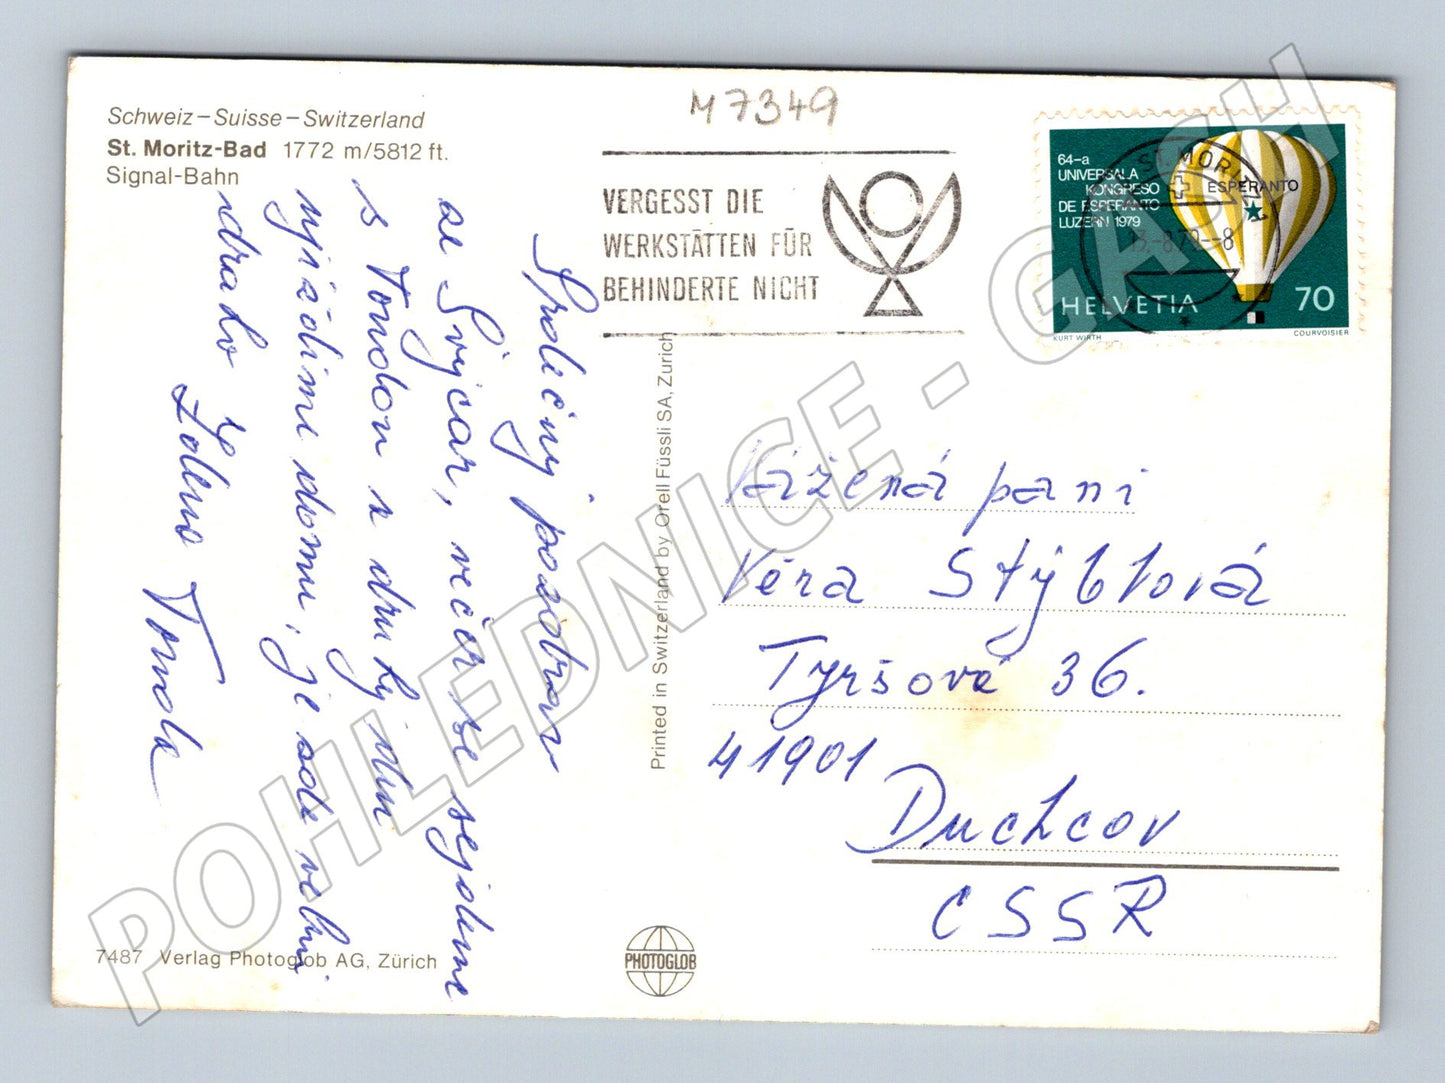 M 7349
Schweiz – Suisse – Switzerland
St. Moritz-Bad 1772 m/5812 ft.
Signal-Bahn
VERGESST DIE
WERKSTÄTTEN FÜR
BEHINDERTE NICHT
64-a
UNIVERSALA
KONGRESO
DE ESPERANTO
LUZERN 1979
ESPERANTO
HELVETIA 70
KURT WIRTH
COURVOISIER
ST. MORITZ
13.-8.79.--8
Srdečný pozdrav
ze Švýcar, večer se sejdeme
s Tondou a druhý den
vyjíždíme domů, je zde velmi
draho
Tomola
Vážená paní
Věra Stýblová
Tyršova 36.
41901
Duchcov
CSSR
Printed in Switzerland by Orell Füssli SA, Zürich
7487 Verlag Photoglob AG, Zürich
PHOTOGLOB
POHLEDNICE - GASH